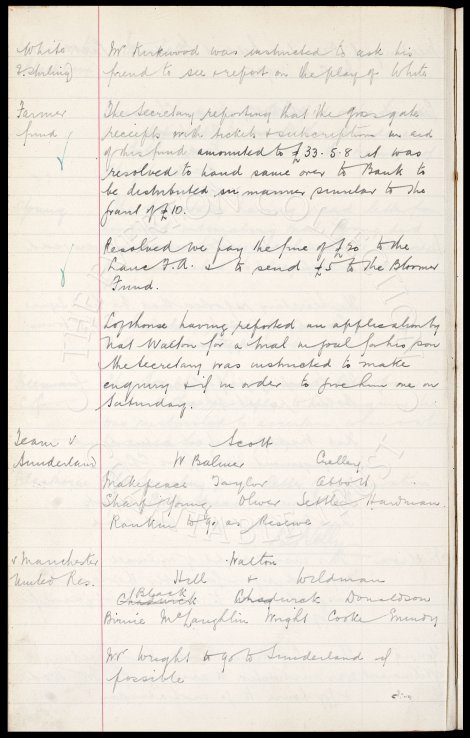 White
Mr Kirkwood was instructed to ask his
& Stirling
friend to see & report on the play of White
Farmer
The Secretary reporting that the gross gate
fund
receipts with tickets & subscription in aid
of this fund amounted to £33.5.8 it was
resolved to hand same over to Bank to
be distributed in manner similar to the
grant of £10.
Resolved we pay the fine of £20 to the
Lanc F.A. & to send £5 to the Bloomer
Fund.
Lofthouse having reported an application by
Nat Walton for a trial in goal for his son
the Secretary was instructed to make
enquiry & if in order to give him one on
Saturday.
Team v
Scott
Sunderland
W Balmer Crelley
Makepeace Taylor Abbott
Sharp Young Oliver Settle Hardman
Rankin to go as Reserve
v Manchester
Walton
United Res.
Hill & Wildman
Black
Chadwick Chadwick Donaldson
Birnie McLaughlin Wright Cooke
Mr Wright to go to Sunderland if
possible